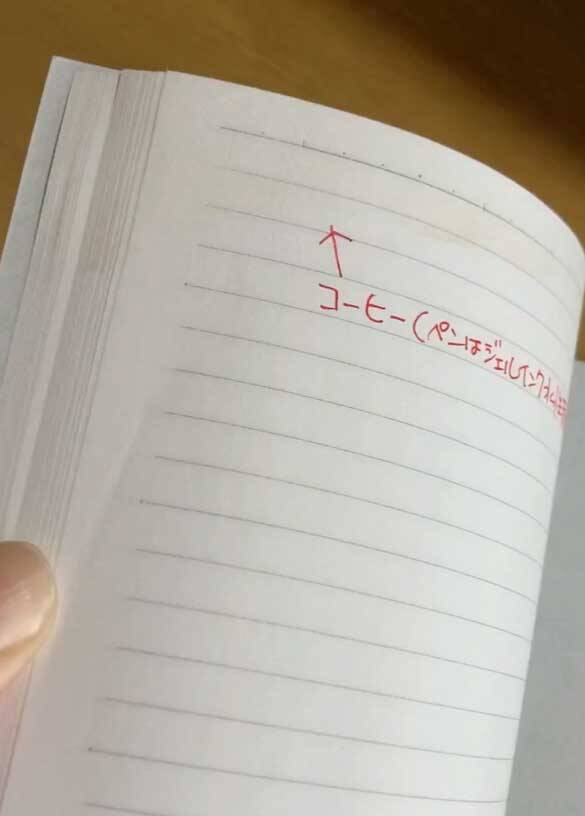 コーヒー(ペンはジェルインク